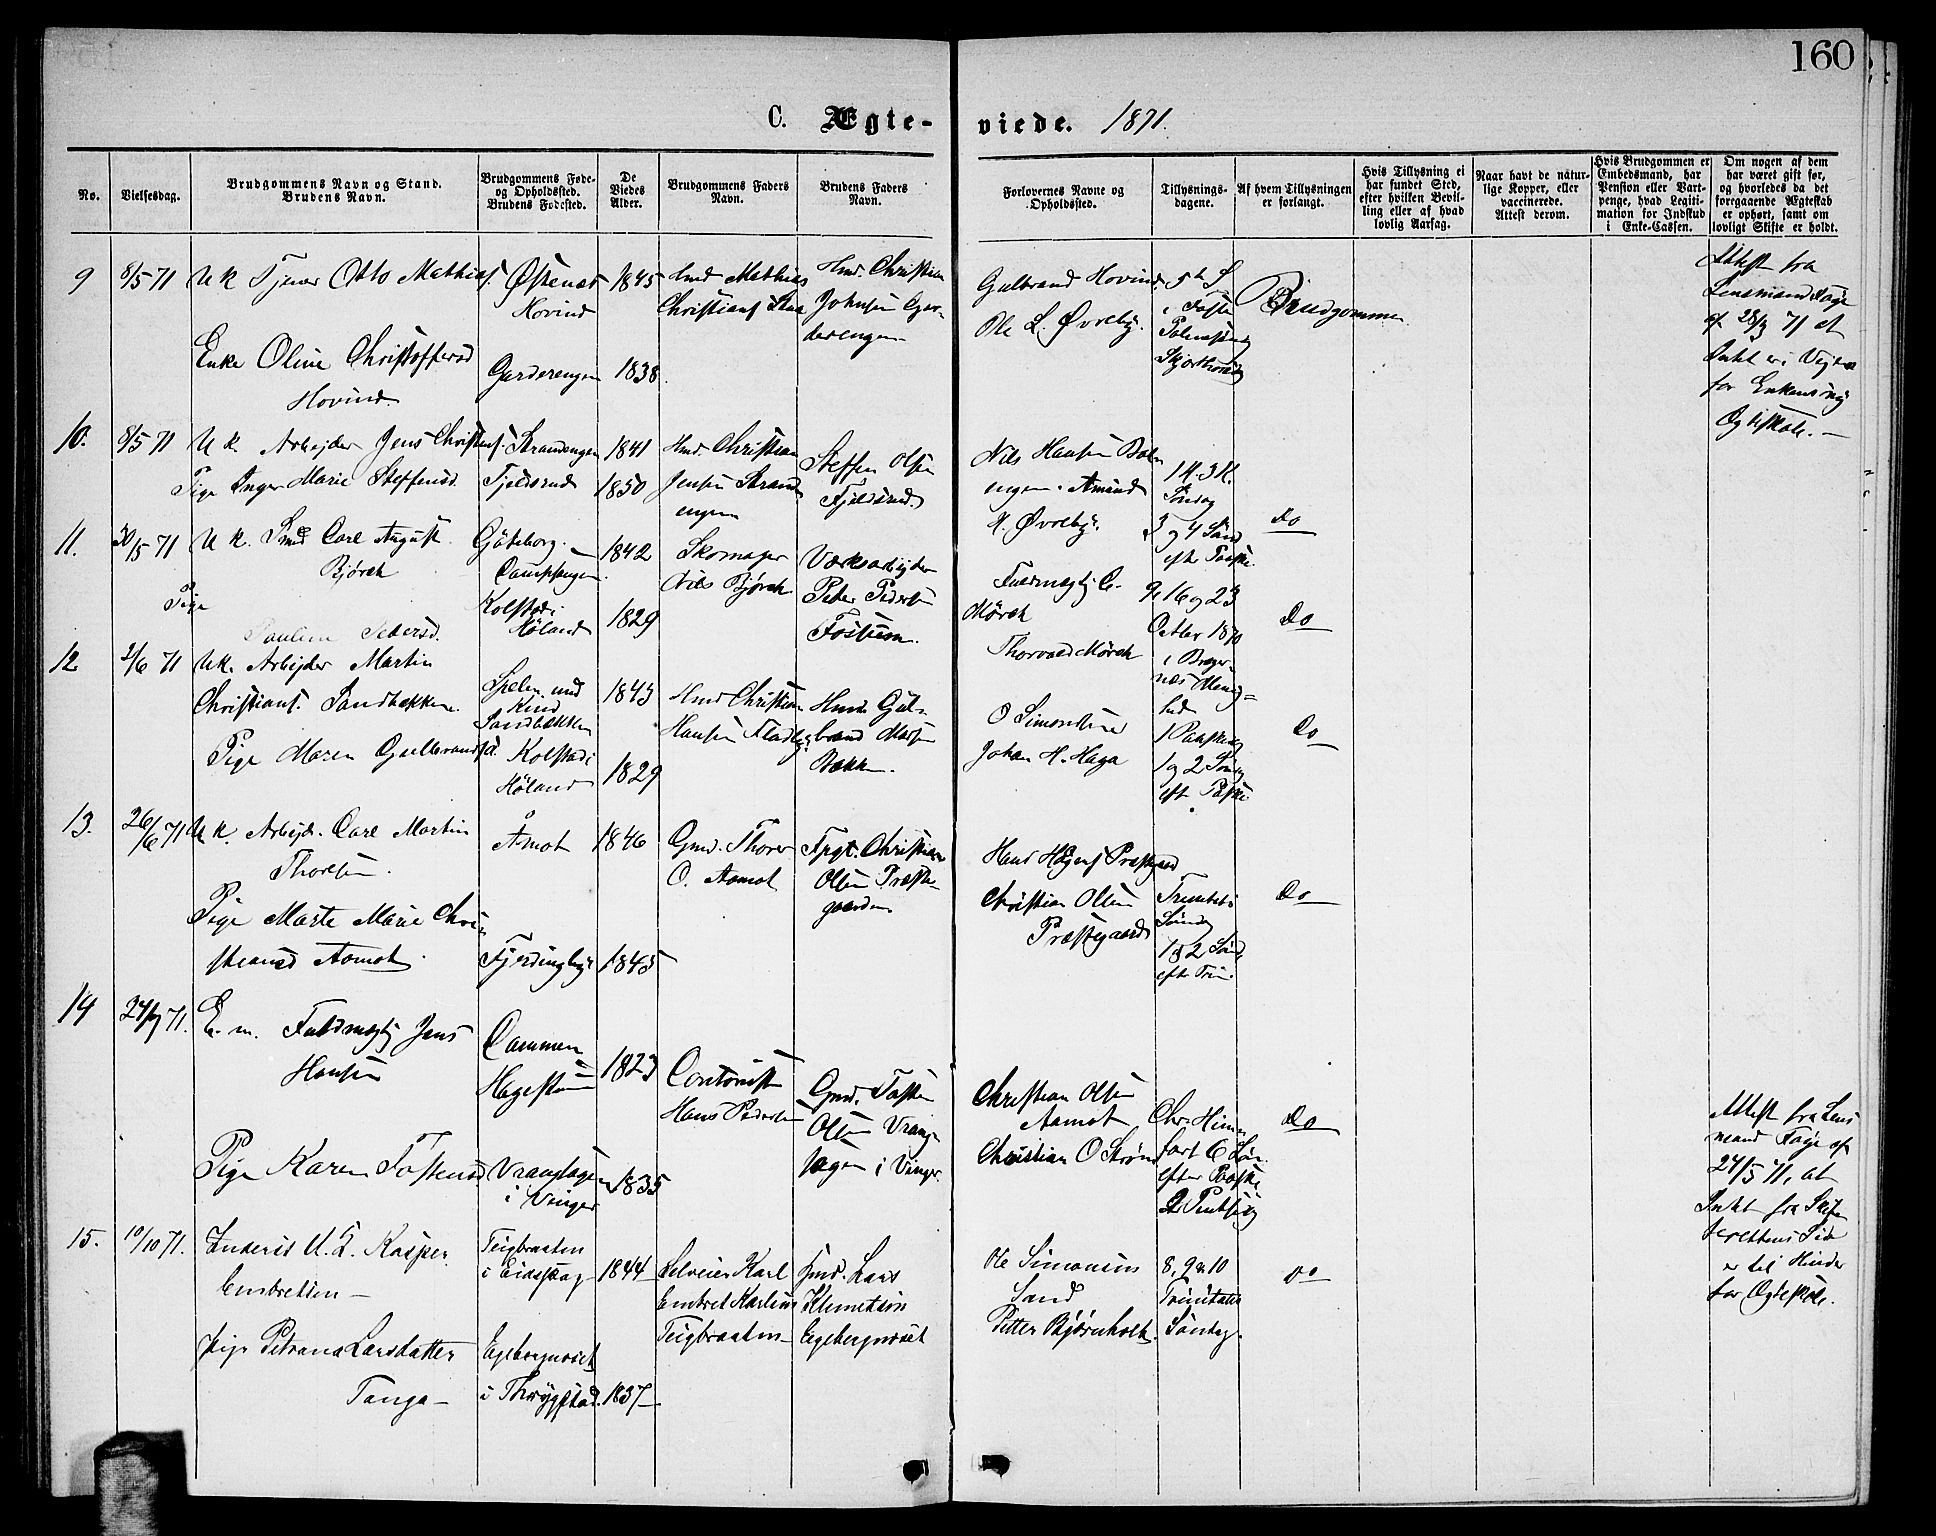 160
C. Ægteviede. 1871.
No.
Vielsesdag.
Brudgommens Navn og Stand.
Brudens Navn.
Brudgommens Føde-
og Opholdssted.
Brudens Fødested.
De
Viedes
Alder.
Brudgommens Faders
Navn.
Brudens Faders
Navn.
Forlovernes Navne og
Opholdssted.
Tillysnings-
dagene.
Af hvem Tillysningen
er forlangt.
Hvis Tillysning ei
har fundet Sted,
efter hvilken Bevil-
ling eller af hvad
lovlig Aarsag.
Naar havt de natur-
lige Kopper, eller
vaccinerede.
Attest derom.
Hvis Brudgommen er
Embedsmand, har
Pension eller Vart-
penge, hvad Legiti-
mation for Indskud
i Enke-Cassen.
Om nogen af dem
har været gift før,
og hvorledes da det
foregaaende Ægteskab
er ophørt, samt om
lovligt Skifte er holdt.
9
8/5 71
U k Tjener Otto Mathias.
Enke Oline Christoffersd
Hovind
Østenas
Hovind
Garderengen
1845
1838
Hmd Mathias
Hmd. Christian
Johnsen Gar-
derengen
Gulbrand Hovind
Ole L. Øvreby.
5te S.
i Faste
Palmesøndag
Brudgommen
Attest fra
Lensmand Fage
af 28/3 71 at
Intet er i Vejen
for Enkens nye
Ægteskab.
10.
8/5 71
U k. Arbejder Jens Christians.
Pige Inger Marie Steffensd.
Strandengen
Fjeldsrud
1841
1850
Hmd. Christian
Jensen Strand
engen
Steffen Olsen
Fjeldsrud.
Nils Hansen
engen. Amund
H. Øvreby.
Søndag
3 og 4 Sønd
eft Paaske.
Do
11.
30/5 71
U k. Smed Carl August
Bjørck
Pige
Pauline Pedersd.
Göteborg.
Kolstad i
Høland
1842
1829
Skomager
Nils Bjørck
Værksarbejder
Peter Pedersen
Fossum.
Fuldmægtig C.
Mørch
Thorvald Mørch
9, 16 og 23
Octbr 1870
i Brager-
næs Menig-
hed
Do
12
2/6 71
Uk. Arbejder Martin
Christians. Sandbækken.
Pige Maren Gulbrandsd.
Sandbækken
Kolstad i
Høland
1843
1829
Hmd Christian
Hansen Fladby
Hmd Gul-
brand
Bække.
O Simonsen
Johan H. Haga
1 Paaskedag
1 og 2 Sønd
eft Paaske
Do
13.
26/6 71
U k. Arbejd. Carl Martin
Thoresen.
Pige Marte Marie Chri-
stiansd Aamot.
Åmot
Fjerdingby
1846
1845
Gmd. Thorer
O. Aamot
Fpgt. Christian
Olsen Præste-
gaarden
Præstgaard
Christian Olsen
Præstegaard
Trinitatis
Søndag
1 & 2 Sønd
efter Trin.
Do
14
E. m. Fuldmægtig Jens
Hansen
Pige Karen Tostensd
Hagestuen
Vrangsagen
i Vinger
1823
1835
Contorist
Hans Pedersen
Gmd. Tosten
Olsen Vrang-
sagen i Vinger.
Christian Olsen
Aamot
Christian O Strøm
Chr. Himmel
fart 6 Søn.
efter Paaske
Do
Attest fra Lens
mand Fage af
27/5 71, at
Intet fra Skifte
rettens Side
er til Hinder
for Ægteskab.
15.
10/10 71.
Kasper
Embretsen
Pige Petrana Larsdatter
Tanga
Teigbraaten
i Eidsskog
Egebergnæset
i Thrygstad.
1844
1837
Selveier Karl
Embret Karlsen
Teigbraaten
Hmd. Lars
Klemetsen
Egebergnæset
Ole Simonsen
Sand
Petter Bjørnholt.
8, 9 & 10
Trinitatis
Søndag.
Do